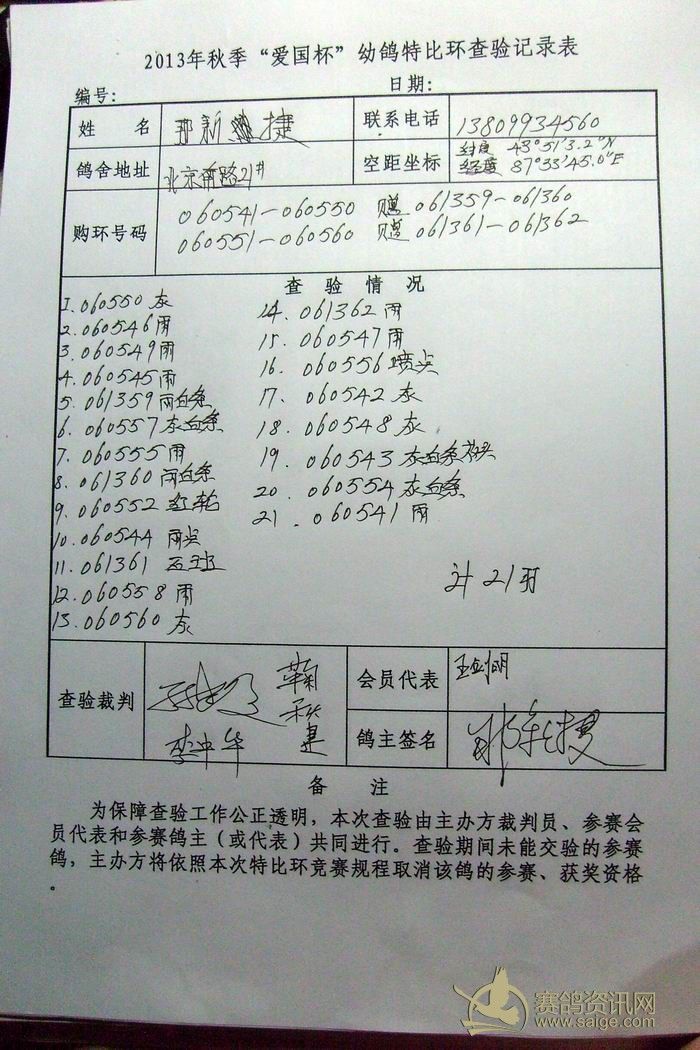 2013年秋季“爱国杯”幼鸽特比环查验记录表
编号: 日期:
姓 名 新 捷 联系电话 13809934560
鸽舍地址 北京南路21# 空距坐标 纬度 43°51′3.2″N
经度 87°33′45.0″E
购环号码 060541-060550 赠 061359-061360
060551-060560 赠 061361-061362
查 验 情 况
1.060550 灰
2.060546 雨
3.060549 雨
4.060545 雨
5.061359 雨白条
6.060557 灰白条
7.060555 雨
8.061360 雨白条
9.060552 红轮
10.060544 雨尖
11.061361
12.060558 雨
13.060560 灰
14.061362 雨
15.060547 雨
16.060556 喷尖
17.060542 灰
18.060548 灰
19.060543 灰白条
20.060554 灰白条
21.060541 雨
计21羽
查验裁判 鞠秋建
李中华
会员代表 王
鸽主签名 新捷
备 注
为保障查验工作公正透明，本次查验由主办方裁判员、参赛会
员代表和参赛鸽主（或代表）共同进行。查验期间未能交验的参赛
鸽，主办方将依照本次特比环竞赛规程取消该鸽的参赛、获奖资格
。
赛鸽资讯网
www.saige.com